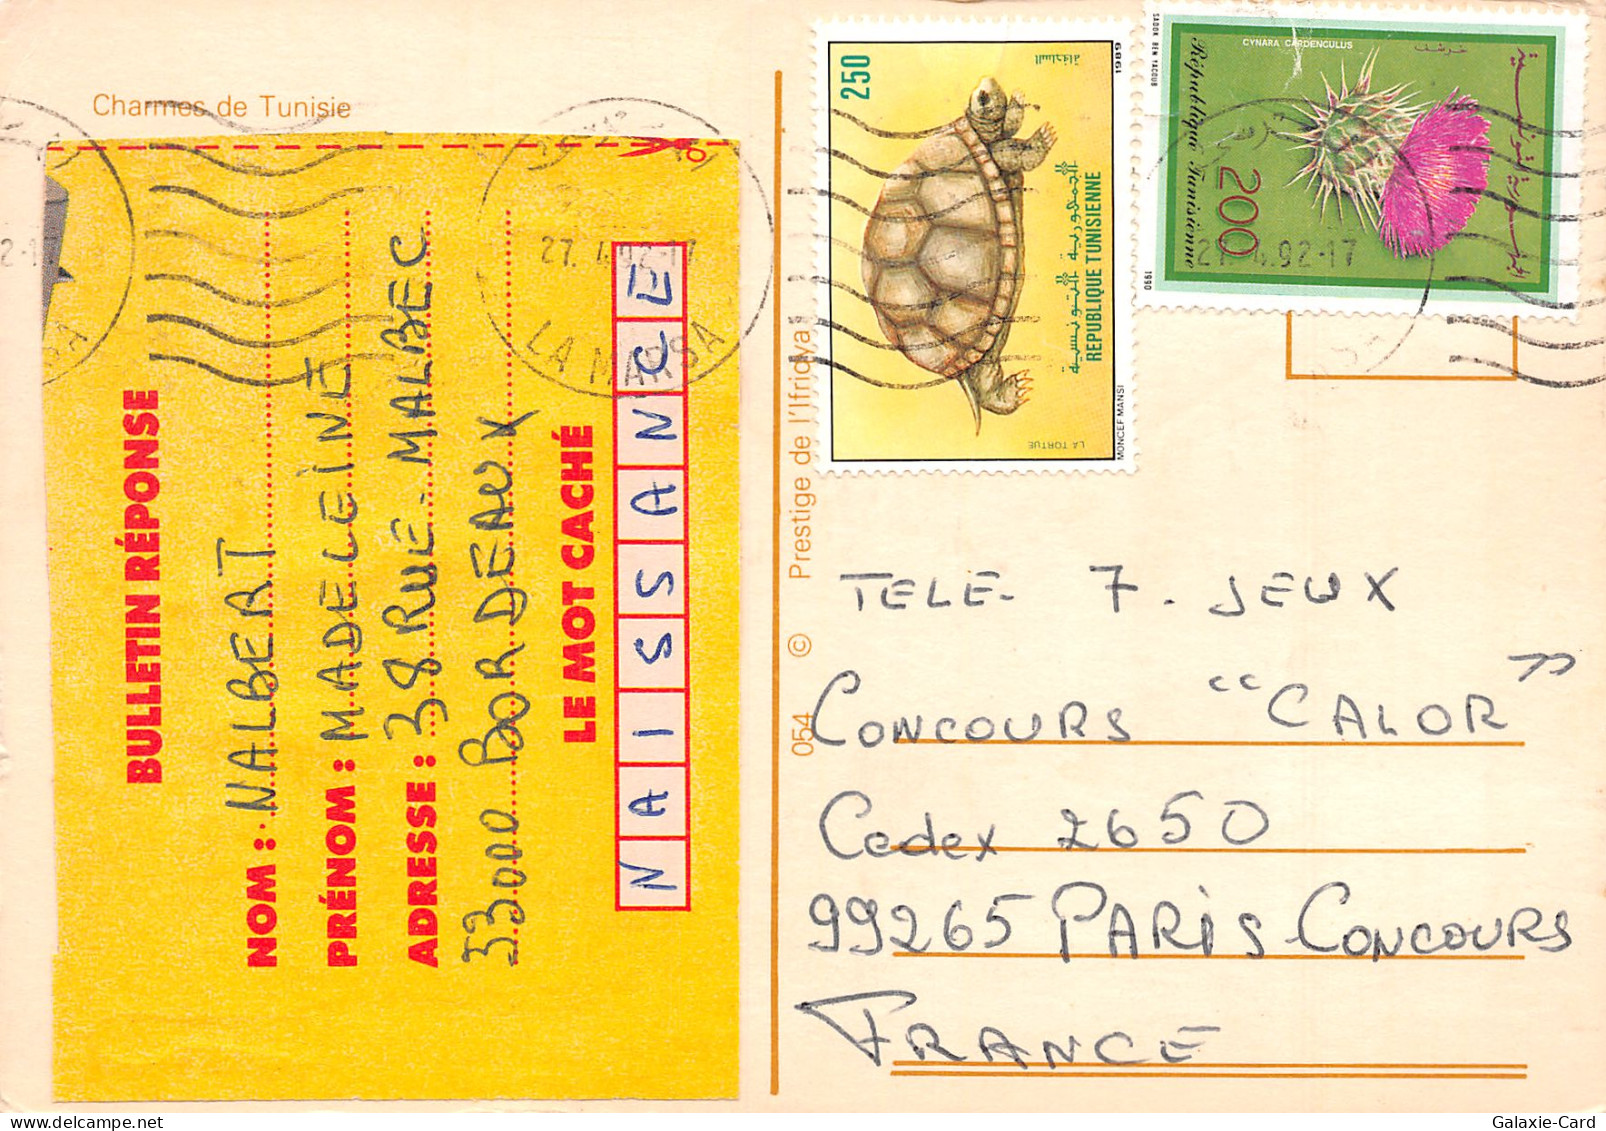 Charmes de Tunisie
BULLETIN RÉPONSE
NOM : NALBERT
PRÉNOM : MADELEINE
ADRESSE : 38 RUE. MALBEC
33000 BORDEAUX
LE MOT CACHÉ
NAISSANCE
27. 4.92-17
LA MARSA
054 © Prestige de l'Ifriqiya
250
1989
السلحفاة
الجمهورية التونسية
REPUBLIQUE TUNISIENNE
LA TORTUE
MONCEF MANSI
SADOK BEN YACOUB
1990
CYNARA CARDENCULUS
خرشف
République Tunisienne
200
الجمهورية التونسية
27. 4.92-17
TELE. 7. JEUX
CONCOURS "CALOR"
Cedex 2650
99265 PARIS CONCOURS
FRANCE
Galaxie-Card